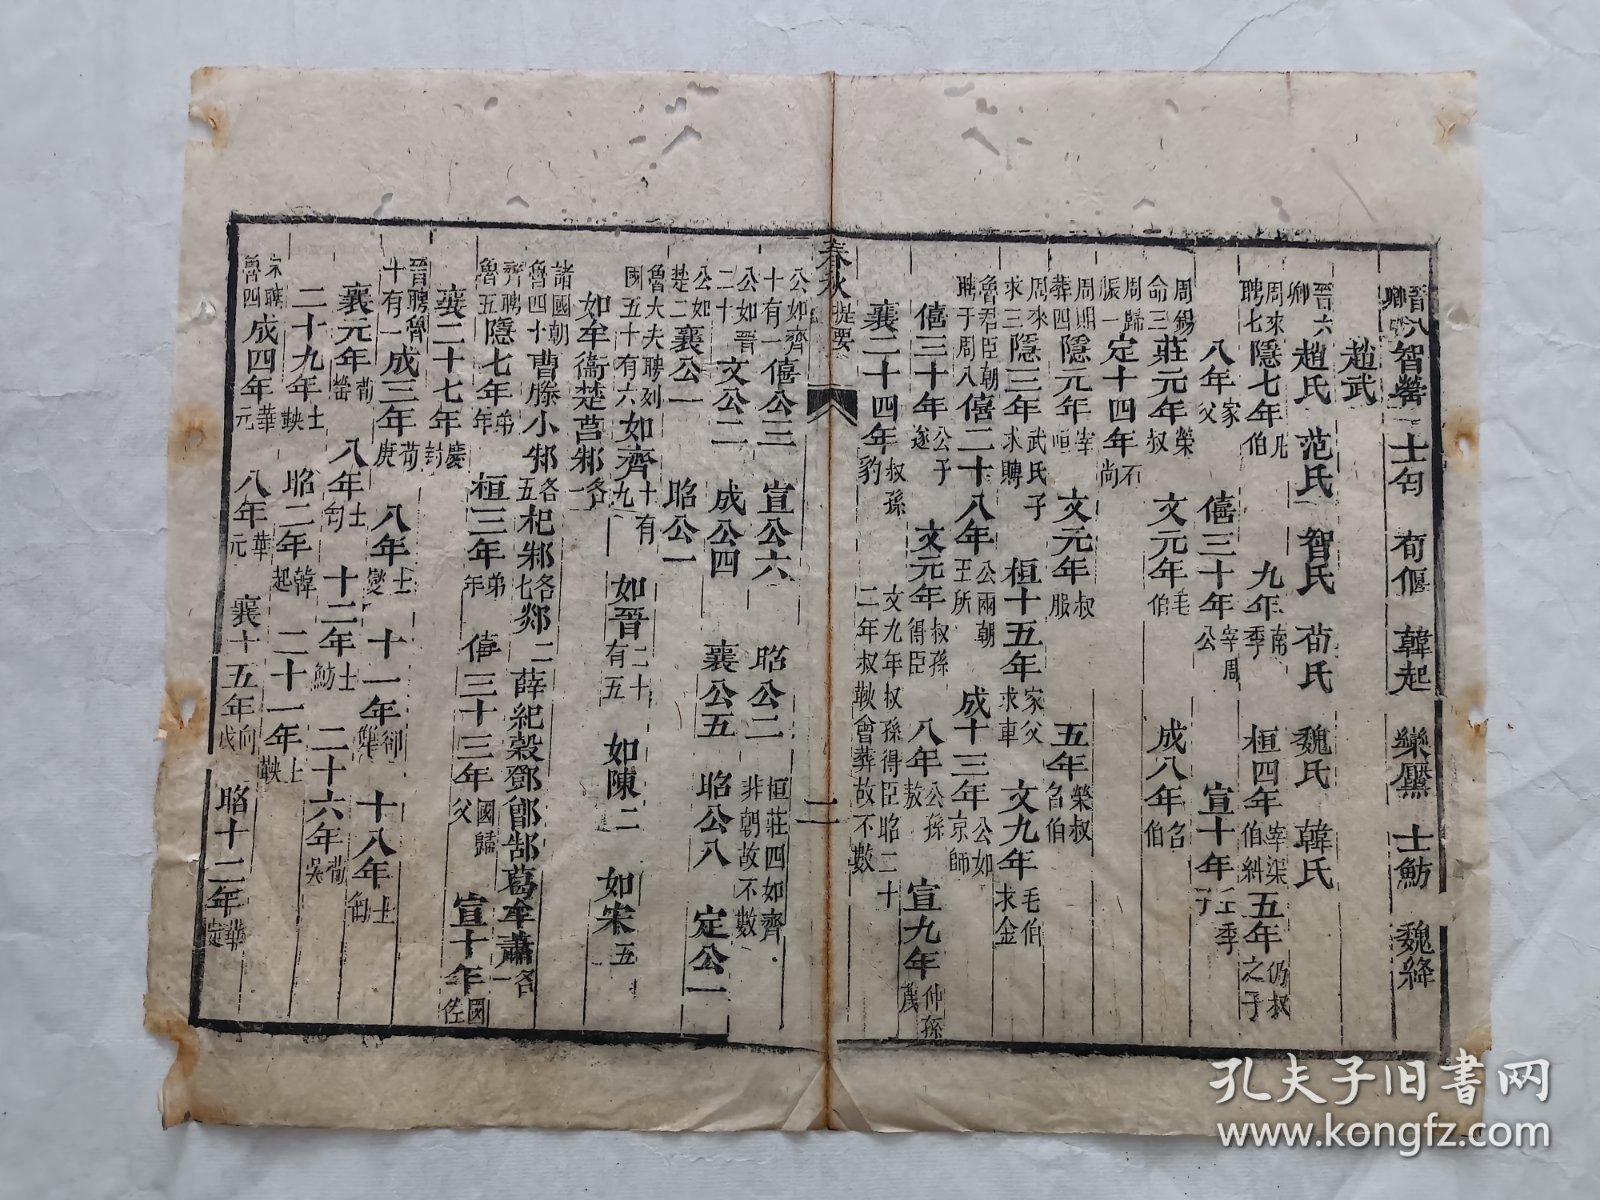 晉八卿 智罃 士匄 荀偃 韓起 欒黶 士魴 魏絳
趙武
晉六卿 趙氏 范氏 智氏 荀氏 魏氏 韓氏
周來聘七 隱七年凡伯 九年南季 桓四年宰渠伯糾 五年仍叔之子
八年家父 僖三十年宰周公 宣十年王季子
周錫命三 莊元年榮叔 文元年毛伯 成八年召伯
周歸脤一 定十四年石尚
周賵葬四 隱元年宰咺 文元年叔服 五年榮叔召伯
周來求三 隱三年武氏子求賻 桓十五年家父求車 文九年毛伯求金
魯君臣朝聘于周八 僖二十八年公兩朝王所 成十三年公如京師
僖三十年公子遂 文元年叔孫得臣 八年公孫敖 宣九年仲孫蔑
襄二十四年叔孫豹 文九年叔孫得臣昭二十二年叔鞅會葬故不數
春秋提要 二
公如齊十有一 僖公三 宣公六 昭公二 桓莊四如齊非朝故不數
公如晉二十 文公二 成公四 襄公五 昭公八 定公一
公如楚二 襄公一 昭公一
魯大夫聘列國五十有六 如齊十有九 如晉二十有五 如陳二 如宋五
如牟衞楚莒邾各一
諸國朝魯四十 曹滕小邾各五 杞邾各七 郯二 薛紀穀鄧鄫郜葛牟蕭各一
齊聘魯五 隱七年弟年 桓三年弟年 僖三十三年國歸父 宣十年國佐
襄二十七年慶封
晉聘魯十有一 成三年荀庚 八年士燮 十一年郤犨 十八年士匄
襄元年荀罃 八年士匄 十二年士魴 二十六年荀吳
二十九年士鞅 昭二年韓起 二十一年士鞅
宋聘魯四 成四年華元 八年華元 襄十五年向戌 昭十二年華定
孔夫子旧书网
www.kongfz.com